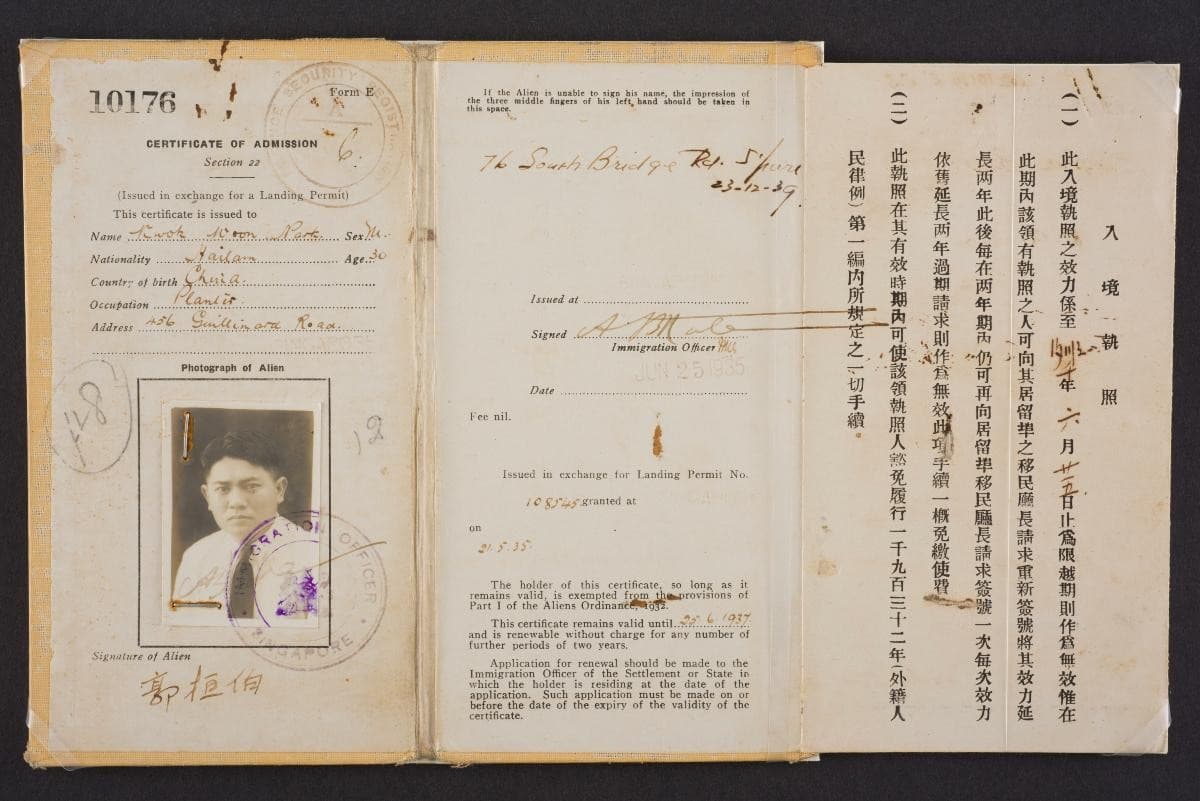 10176
Form E
CERTIFICATE OF ADMISSION
Section 22
(Issued in exchange for a Landing Permit)
This certificate is issued to
Name Kwok Woon Park Sex M.
Nationality Hailam Age 30
Country of birth China.
Occupation Planter
Address 456 Guillimard Road.
Photograph of Alien
128
18
IMMIGRATION OFFICER
SINGAPORE
Signature of Alien
郭桓伯
SECURITY
6.
If the Alien is unable to sign his name, the impression of
the three middle fingers of his left hand should be taken in
this space.
76 South Bridge Rd. S'pore
23-12-39
Issued at
Signed
Immigration Officer
JUN 25 1935
Date
Fee nil.
Issued in exchange for Landing Permit No.
108545 granted at
on
21.5.35.
The holder of this certificate, so long as it
remains valid, is exempted from the provisions of
Part I of the Aliens Ordinance, 1932.
This certificate remains valid until 25 6 1937
and is renewable without charge for any number of
further periods of two years.
Application for renewal should be made to the
Immigration Officer of the Settlement or State in
which the holder is residing at the date of the
application. Such application must be made on or
before the date of the expiry of the validity of the
certificate.
入境執照
(一) 此入境執照之效力係至 年六月廿五日止爲限越期則作爲無效惟在
此期內該領有執照之人可向其居留埠之移民廳長請求重新簽號將其效力延
長两年此後每在两年期內仍可再向居留埠移民廳長請求簽號一次每次效力
依舊延長两年過期請求則作爲無效此項手續一概免繳使費
(二) 此執照在其有效時期內可使該領執照人豁免履行一千九百三十二年(外籍人
民律例)第一編內所規定之一切手續